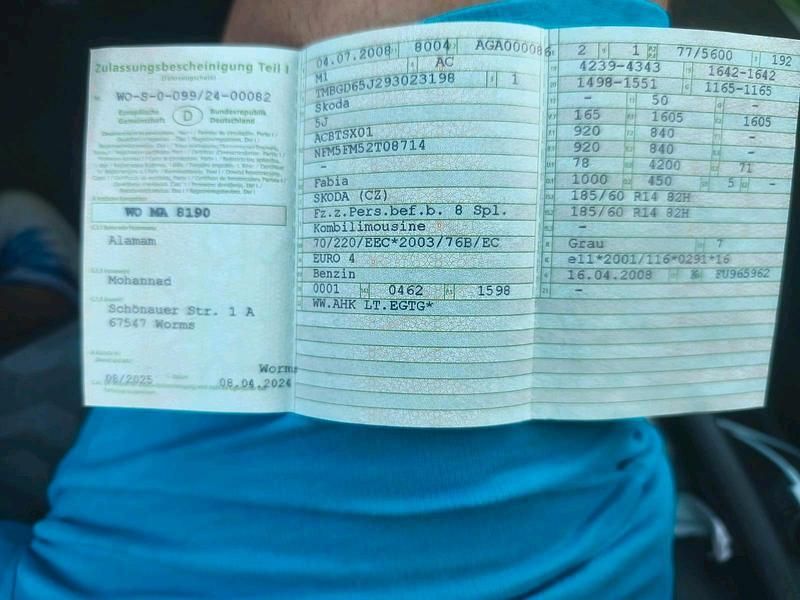 Zulassungsbescheinigung Teil I
(Fahrzeugschein)
WO-S-0-099/24-00082
Europäische Gemeinschaft
D
Bundesrepublik Deutschland
WO MA 8190
Alamam
Mohannad
Schönauer Str. 1 A
67547 Worms
Worms
08/2025
08.04.2024
04.07.2008 8004 AGA000086
M1 AC
TMBGD65J293023198 1
Skoda
5J
ACBTSX01
NFM5FM52T08714
-
Fabia
SKODA (CZ)
Fz.z.Pers.bef.b. 8 Spl.
Kombilimousine
70/220/EEC*2003/76B/EC
EURO 4
Benzin
0001 0462 1598
WW.AHK LT.EGTG*
2 1 77/5600 192
4239-4343 1642-1642
1498-1551 1165-1165
- 50 -
165 1605 1605
920 840 -
920 840 -
78 4200 71
1000 450 5 -
185/60 R14 82H
185/60 R14 82H
-
Grau 7
e11*2001/116*0291*16
16.04.2008 K FU965962
-